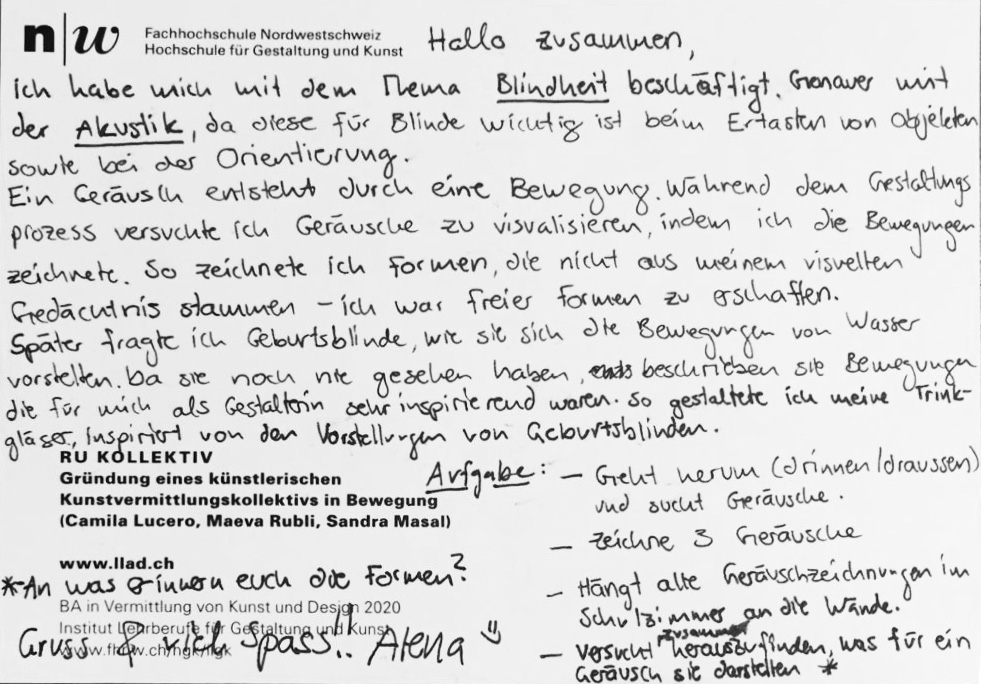 n|w Fachhochschule Nordwestschweiz
Hochschule für Gestaltung und Kunst
Hallo zusammen,
ich habe mich mit dem Thema Blindheit beschäftigt. Genauer mit
der Akustik, da diese für Blinde wichtig ist beim Ertasten von Objekten
sowie bei der Orientierung.
Ein Geräusch entsteht durch eine Bewegung. Während dem Gestaltungs
prozess versuchte ich Geräusche zu visualisieren, indem ich die Bewegungen
zeichnete. So zeichnete ich Formen, die nicht aus meinem visuellen
Gedächtnis stammen – ich war freier Formen zu erschaffen.
Später fragte ich Geburtsblinde, wie sie sich die Bewegungen von Wasser
vorstellen. Da sie noch nie gesehen haben, beschrieben sie Bewegungen
die für mich als Gestalterin sehr inspirierend waren. So gestaltete ich meine Trink-
gläser, inspiriert von den Vorstellungen von Geburtsblinden.
RU KOLLEKTIV
Gründung eines künstlerischen
Kunstvermittlungskollektivs in Bewegung
(Camila Lucero, Maeva Rubli, Sandra Masal)
www.llad.ch
*An was erinnern euch die Formen?
BA in Vermittlung von Kunst und Design 2020
Institut Lehrberufe für Gestaltung und Kunst
www.fhnw.ch/hgk/ilgk
Gruss & viel Spass!! Alena
Aufgabe: – Geht herum (drinnen/draussen)
und sucht Geräusche.
– zeichne 3 Geräusche
– Hängt alle Geräuschzeichnungen im
Schulzimmer an die Wände.
– versucht zusammen herauszufinden, was für ein
Geräusch sie darstellen *